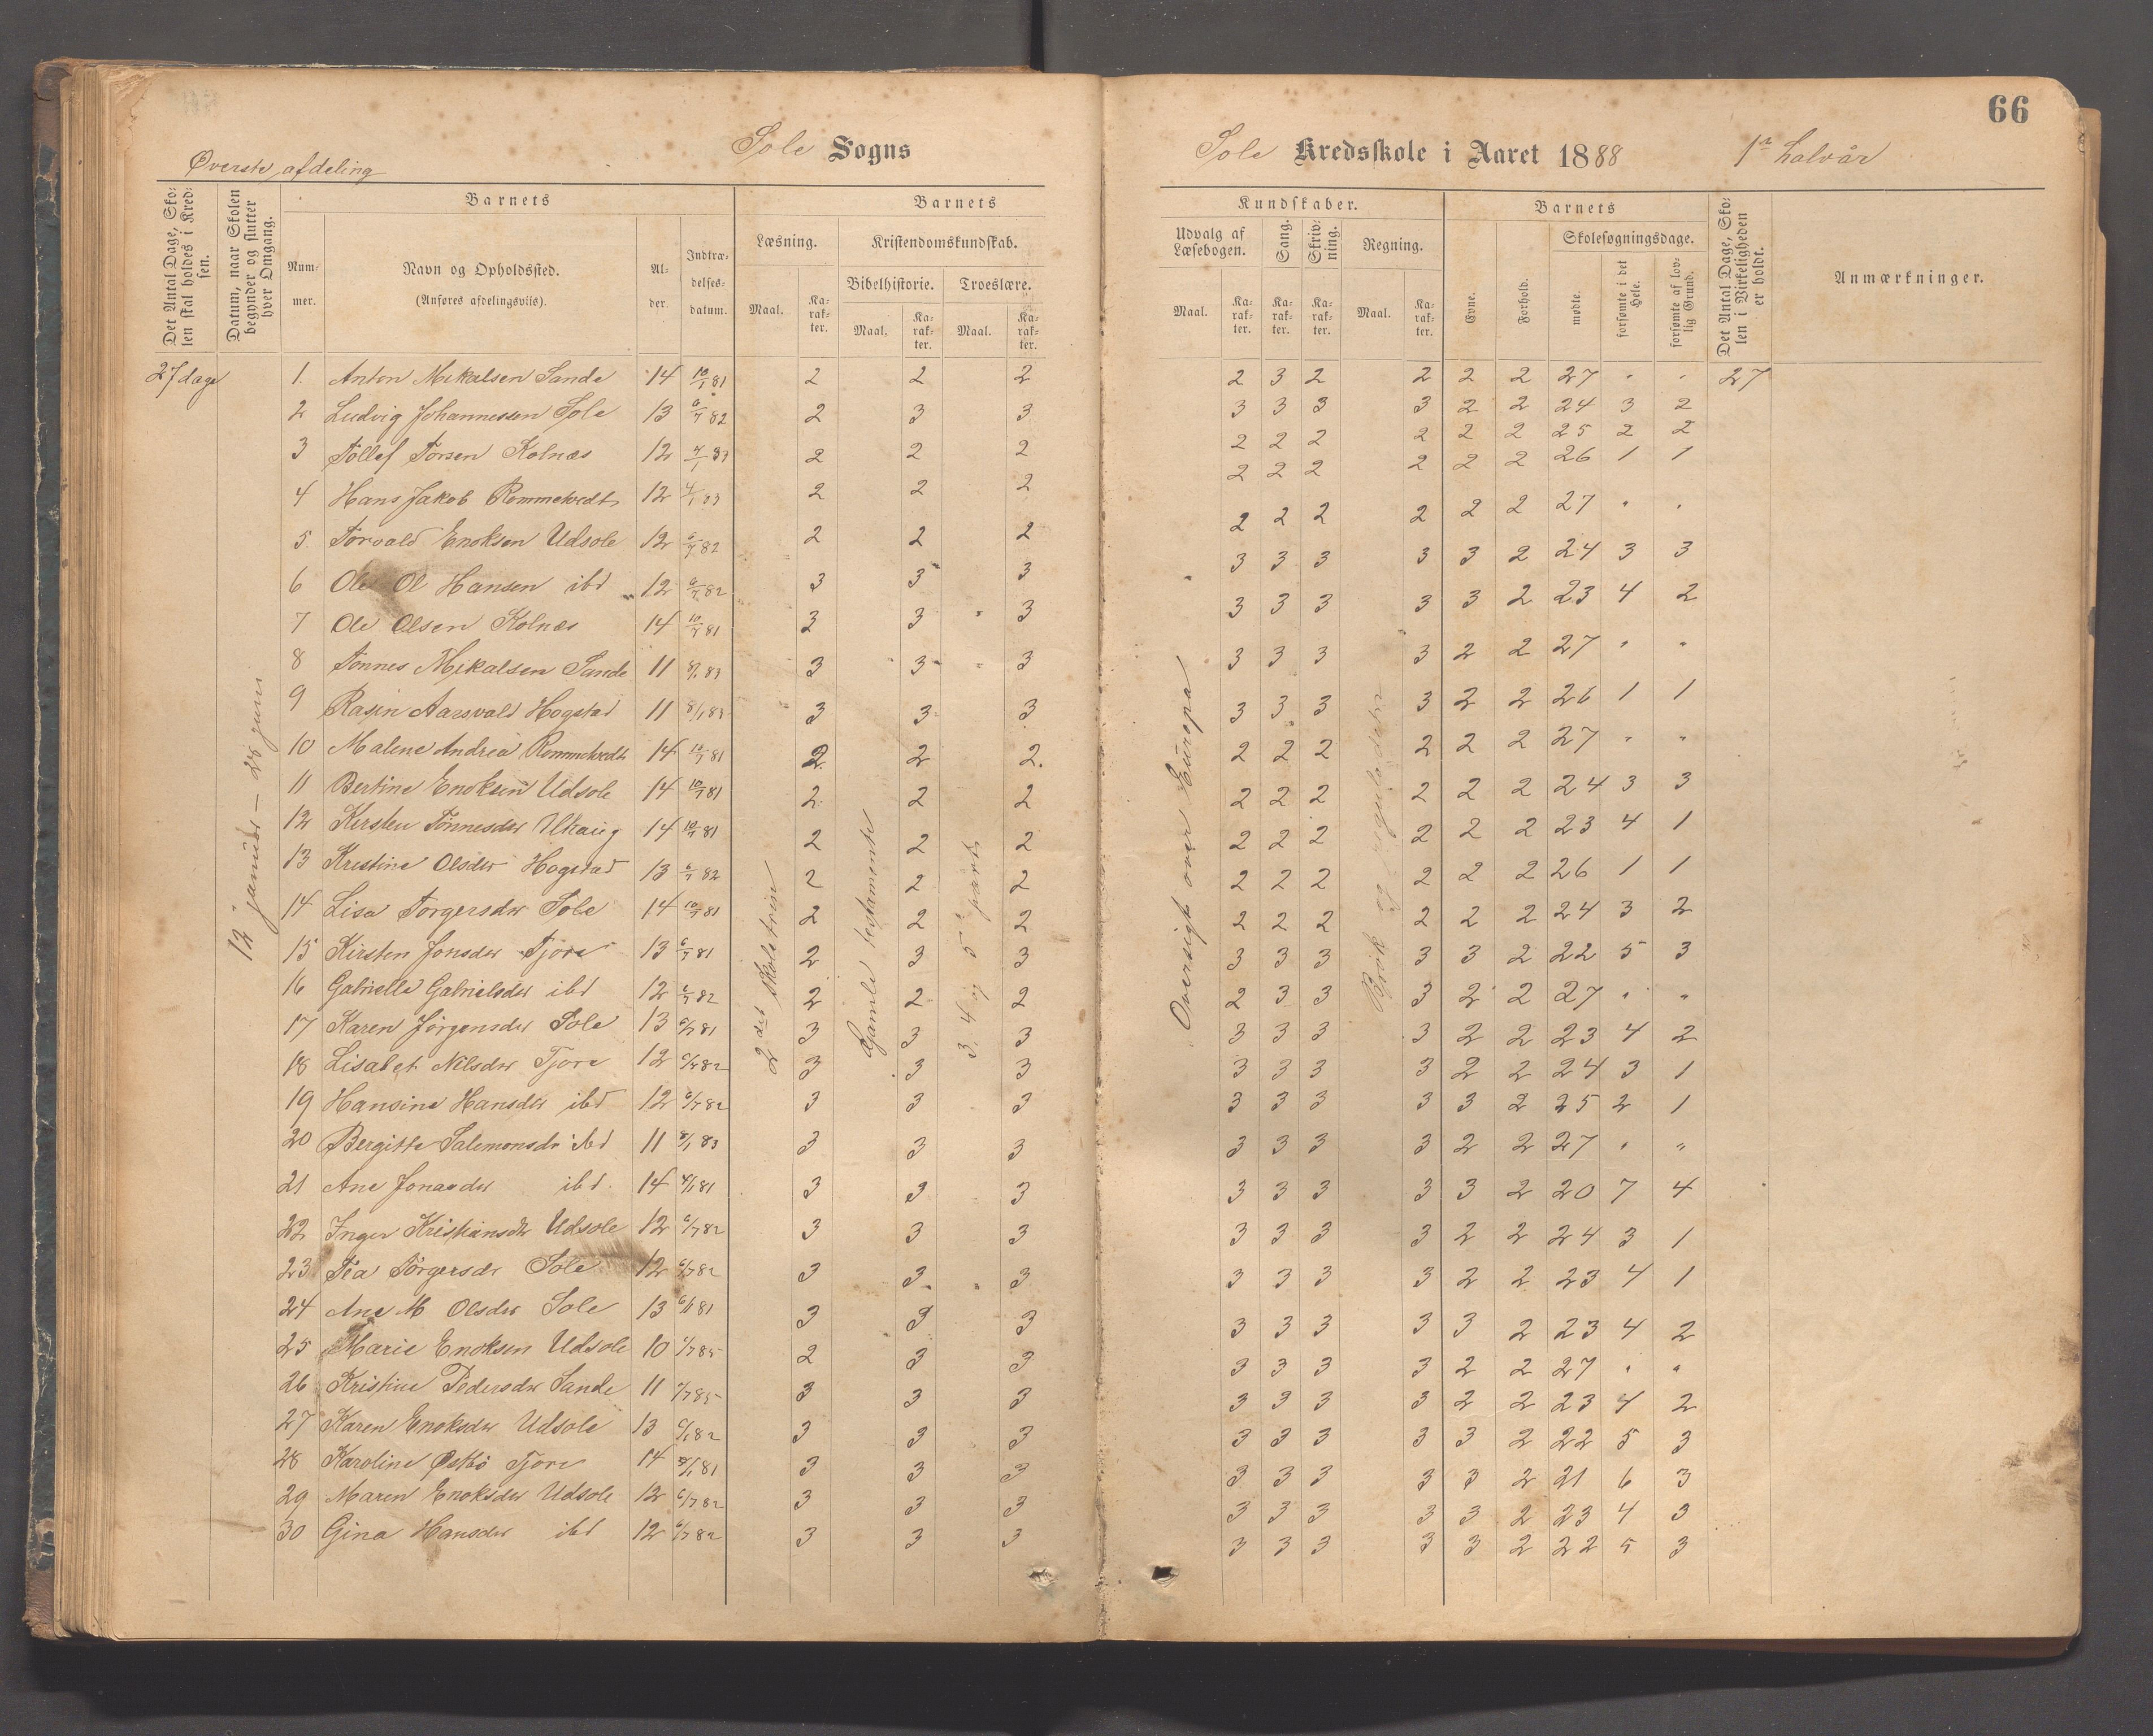 66
Sole Sogns
Sole Kredsskole i Aaret 1888 1ste halvår
Øverste afdeling
Det Antal Dage, Skolen skal holdes i Kredsen.
Datum, naar Skolen begynder og slutter hver Omgang.
Barnets
Nummer.
Navn og Opholdssted.
(Anføres afdelingsviis).
Alder.
Indtrædelsesdatum.
Barnets
Læsning.
Maal.
Karakter.
Kristendomskundskab.
Bibelhistorie.
Maal.
Karakter.
Troeslære.
Maal.
Karakter.
Kundskaber.
Udvalg af Læsebogen.
Maal.
Karakter.
Sang.
Karakter.
Skrivning.
Karakter.
Regning.
Maal.
Karakter.
Barnets
Evne.
Forhold.
Skolesøgningsdage.
mødte.
forsømte i det Hele.
forsømte af lovlig Grund.
Det Antal Dage, Skolen i Virkeligheden er holdt.
Anmærkninger.
27 dage
12 januar – 28 juni
2det skoletrin
Gamle testamente
3, 4 og 5 part
Oversigt over Europa
Brøk og reguladetri
1. Anton Mikalsen Sande 14 10/1 81 2 2 2 2 3 2 2 2 2 27 " " 27
2 Ludvig Johannessen Sole 13 6/7 82 2 3 3 3 3 3 3 2 2 24 3 2
3 Tollef Torsen Kolnæs 12 2 2 2 2 2 2 2 2 2 25 2 2
4 Hans Jakob Rommetvedt 12 2 2 2 2 2 2 2 2 2 26 1 1
5. Torvald Enoksen Udsole 12 6/7 82 2 2 2 2 2 2 2 2 2 27 " "
6 Ole Ol Hansen ibd 12 6/7 82 3 3 3 3 3 3 3 3 2 24 3 3
7 Ole Olsen Kolnæs 14 10/7 81 3 3 3 3 3 3 3 3 2 23 4 2
8 Tønnes Mikalsen Sande 11 8/1 83 3 3 3 3 3 3 3 2 2 27 " "
9 Rasin Aarsvald Hogstad 11 8/1 83 3 3 3 3 3 3 3 2 2 26 1 1
10 Malene Andrea Rommetvedt 14 10/7 81 2 2 2. 2 2 2 2 2 2 27 " "
11 Bertine Enoksen Udsole 14 10/7 81 2 2 2 2 2 2 2 2 2 24 3 3
12 Kirsten Tønnesdtr 14 10/7 81 2 2 2 2 2 2 2 2 2 23 4 1
13 Kristine Olsdtr Hogstad 13 6/7 82 2 2 2 2 2 2 2 2 2 26 1 1
14 Lisa Torgersdtr Sole 14 10/7 81 2 2 2 2 2 2 2 2 2 24 3 2
15 Kirsten Jonsdtr Tjora 13 6/7 81 2 3 3 3 3 3 3 3 2 22 5 3
16 Gabrielle Gabrielsdtr ibd 12 6/7 82 2 2 2 2 3 3 3 2 2 27 " "
17 Karen Jørgensdtr Sole 13 6/7 81 3 3 3 3 3 3 3 2 2 23 4 2
18 Lisabet Nilsdtr Tjora 12 6/7 82 3 3 3 3 3 3 3 2 2 24 3 1
19 Hansine Hansdtr ibd 12 6/7 82 3 3 3 3 3 3 3 3 2 25 2 1
20 Bergitte Salemonsdtr ibd 11 8/1 83 3 3 3 3 3 3 3 2 2 27 " "
21 Ane Jonasdtr ibd. 14 3 3 3 3 3 3 3 3 2 20 7 4
22 Inger Kristiansdtr Udsole 12 6/7 82 3 3 3 3 3 3 3 2 2 24 3 1
23 Tea Torgersdtr Sole 12 6/7 82 3 3 3 3 3 3 3 2 2 23 4 1
24 Ane M Olsdtr Sole 13 3 3 3 3 3 3 3 3 2 23 4 2
25 Marie Enoksen Udsole 10 2 3 3 3 3 3 3 2 2 27 " "
26 Kristine Pedersdtr Sande 11 3 3 3 3 3 3 3 2 2 23 4 2
27 Karen Enoksdtr Udsole 13 3 3 3 3 3 3 3 3 2 22 5 3
28 Karoline Østbø Tjora 14 3 3 3 3 3 3 3 3 2 21 6 3
29 Maren Enoksdtr Udsole 12 6/7 82 3 3 3 3 3 3 3 3 2 23 4 3
30 Gina Hansdtr ibd 12 6/7 82 3 3 3 3 3 3 3 3 2 22 5 3